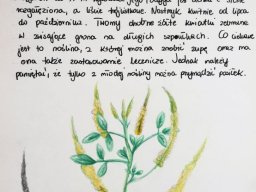 rozgałęziona, a liście trójlistkowe. Nostrzyk kwitnie od lipca
do października. Tworzy drobne żółte kwiatki zebrane
w zwisające grona na długich szypułkach. Co ciekawe
jest to roślina, z której można zrobić zupę oraz ma
ona także zastosowanie lecznicze. Jednak należy
pamiętać, że tylko z młodej rośliny można przyrządzić posiłek.